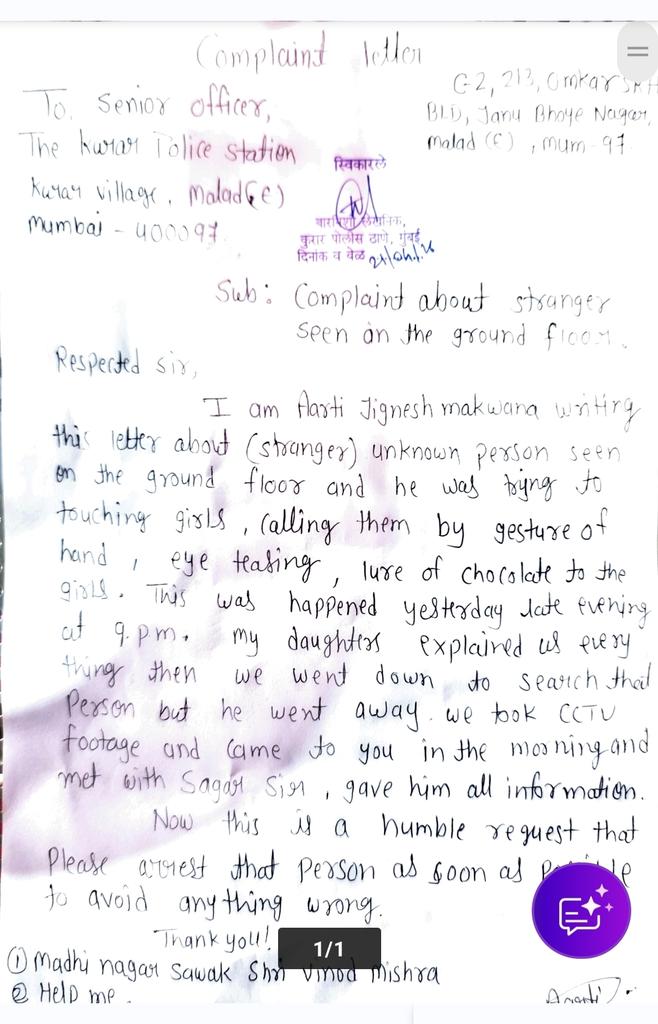 Complaint letter
C-2, 213, Omkar SRA
BLD, Janu Bhoye Nagar,
malad (E) , mum - 97.
To, Senior officer,
The Kurar Police station
Kurar village, Malad (E)
mumbai - 400097.
स्विकारले
कुरार पोलीस ठाणे, मुंबई
दिनांक व वेळ
Sub: Complaint about stranger
seen on the ground floor.
Respected sir,
I am Aarti Jignesh makwana writing
this letter about (stranger) unknown person seen
on the ground floor and he was trying to
touching girls, calling them by gesture of
hand, eye teasing, lure of chocolate to the
girls. This was happened yesterday late evening
at 9.p.m. my daughters explained us every
thing then we went down to search that
Person but he went away. we took CCTV
footage and came to you in the morning and
met with Sagar Sir, gave him all information.
Now this is a humble request that
Please arrest that person as soon as
to avoid anything wrong.
Thank you!
1/1
① madhi nagar sawak Shri Vinod mishra
② Help me.